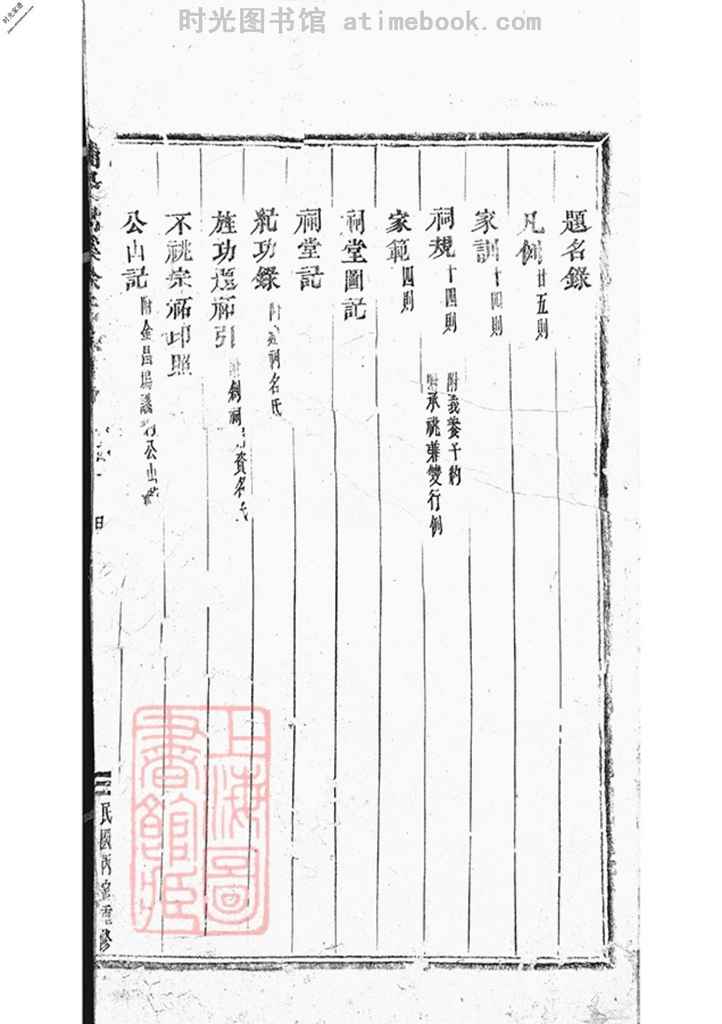 时光图书馆 atimebook.com
时光家谱
題名錄
凡例 廿五則
家訓 十四則
祠規 十四則 附義養干約
附承祧兼雙行例
家範 四則
祠堂圖記
祠堂記
紀功錄 附 祠名氏
旌功 祔引 附創祠 資名氏
不祧宗祏印照
公山記 附金昌塢議 公山
目
民國丙 重修
上海圖書館藏